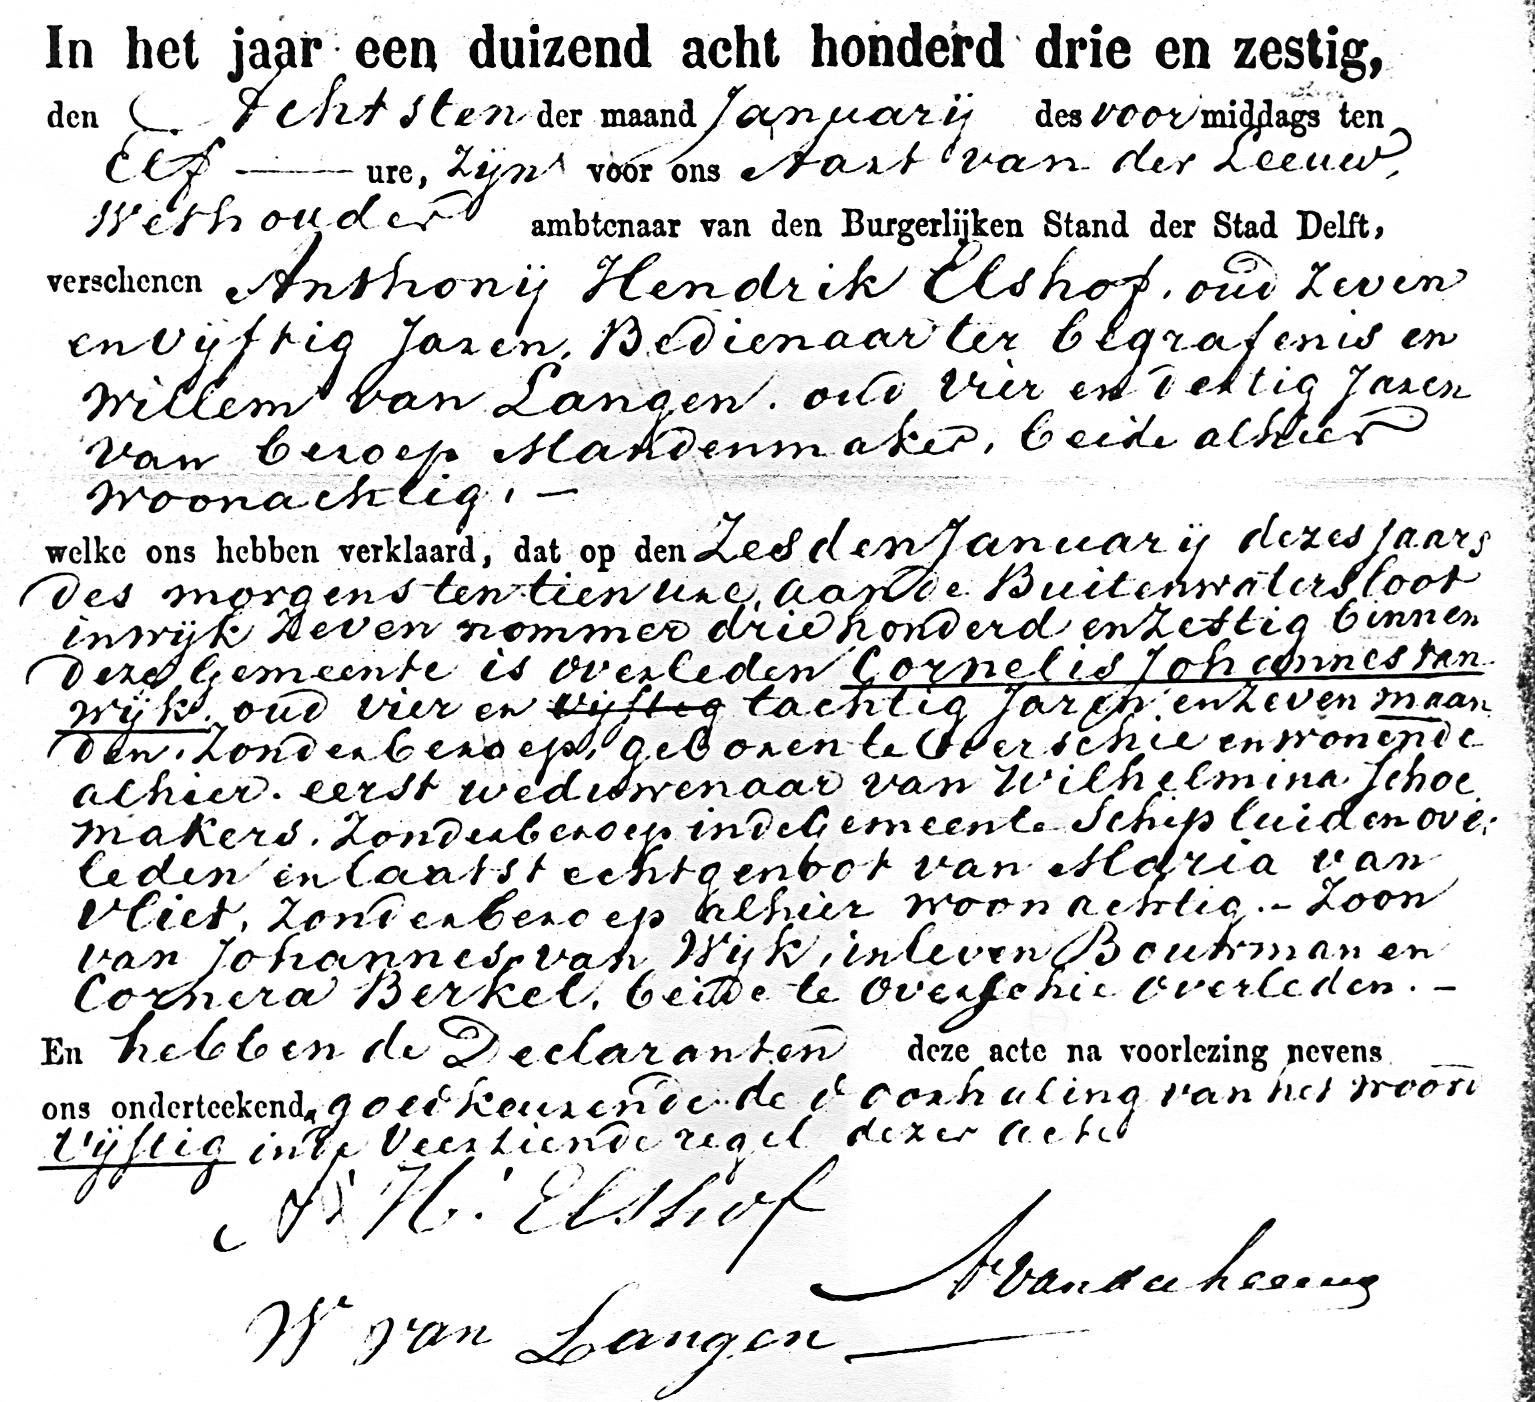 In het jaar een duizend acht honderd drie en zestig,
den Achtsten der maand Januarij des voormiddags ten
Elf ure, zijn voor ons Aart van der Leeuw,
Wethouder ambtenaar van den Burgerlijken Stand der Stad Delft,
verschenen Anthonij Hendrik Elshof, oud zeven
en vijftig Jaren, Bedienaar ter begrafenis en
Willem van Langen, oud vier en dertig Jaren
van beroep Mandenmaker, beide alhier
woonachtig, —
welke ons hebben verklaard, dat op den Zesden Januarij dezes Jaars
des morgens ten tien ure, aan de Buitenwatersloot
in wijk Zeven nommer driehonderd en Zestig binnen
deze Gemeente is overleden Cornelis Johannes van
Wijk, oud vier en vijftig tachtig Jaren en zeven maan
den, zonder beroep, geboren te Overschie en wonende
alhier, eerst weduwenaar van Wilhelmina Schoe
makers, zonder beroep in de Gemeente Schipluiden over
leden en laatst echtgenoot van Maria van
Vliet, zonder beroep alhier woonachtig. – Zoon
van Johannes van Wijk, in leven Bouwman en
Cornera Berkel, beide te Overschie overleden. –
En hebben de Declaranten deze acte na voorlezing nevens
ons onderteekend, goedkeurende de doorhaling van het woord
vijftig in de Veertiende regel dezer acte
A. H. Elshof
A van der Leeuw
W van Langen